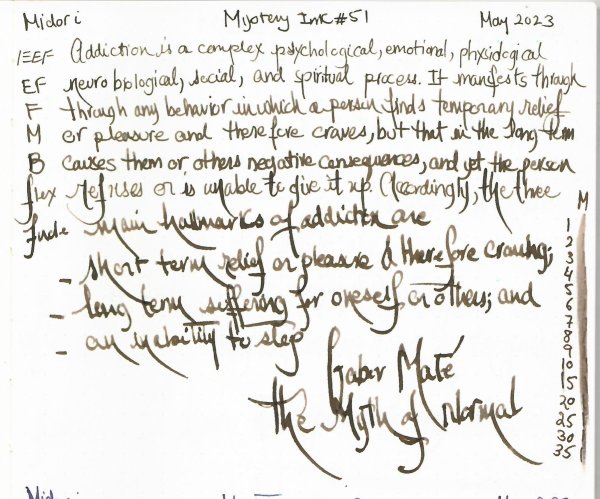 Midori Mystery Ink #51 May 2023
EEF Addiction is a complex psychological, emotional, physiological
EF neurobiological, social, and spiritual process. It manifests through
F through any behavior in which a person finds temporary relief
M or pleasure and therefore craves, but that in the long term
B causes them or others negative consequences, and yet the person
flex refuses or is unable to give it up. Accordingly, the three
fude main hallmarks of addiction are
- short term relief or pleasure & therefore craving;
- long term suffering for oneself or others; and
- an inability to stop
Gabor Maté
The Myth of Normal
M
1
2
3
4
5
6
7
8
9
10
15
20
25
30
35
Midori